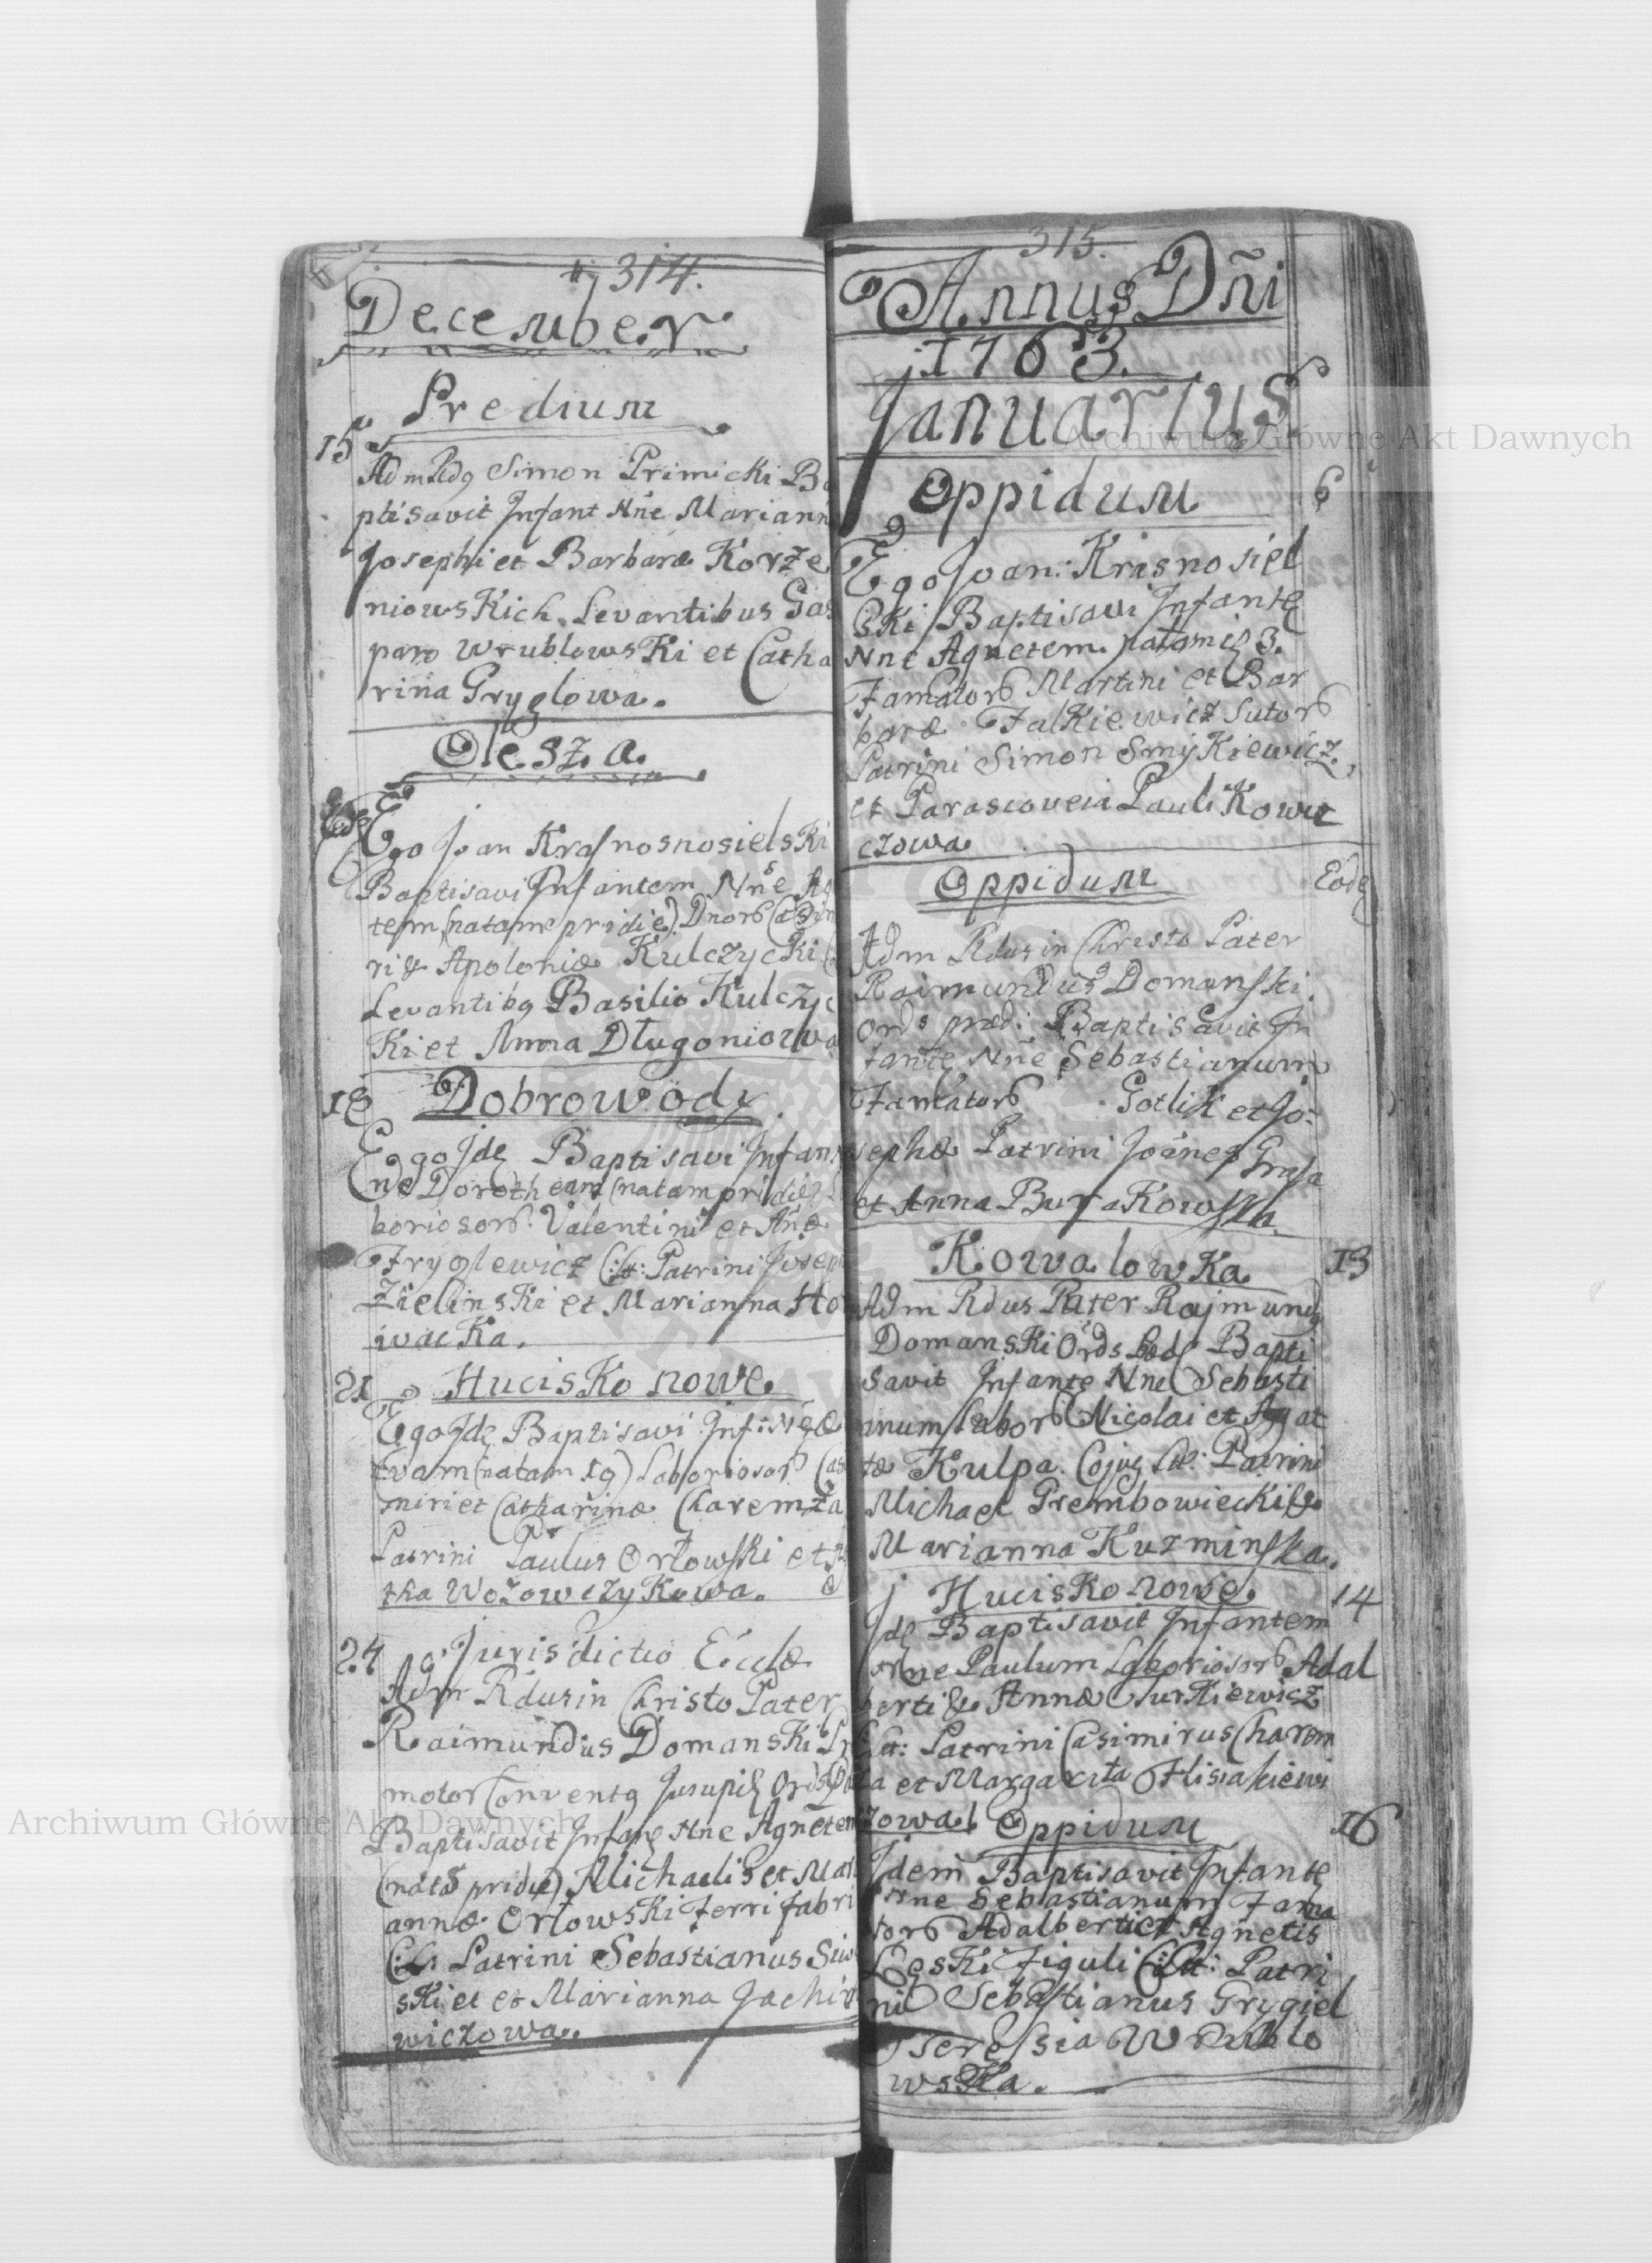 314.
December
Predium
15
Adm Rdq Simon Primicki Ba
ptisavit Infant Nne Mariann
Josephi et Barbaræ Korze
niowsKich. Levantibus Gas
paro WrublowsKi et Catha
rina Gryglowa.
Olesza.
Ego Joan KrasnosnosielsKi
Baptisavi Infantem Nne Ag
tem (natam pridie) Dnorū Casim
ri & Apoloniæ KulczycKi
Levantibq Basilio Kulczyc
Ki et Anna Długoniowa
18 Dobrowody
Ego Idę Baptisavi Infan
nē Dorotheam (natam pridie) La
boriosorū Valentini et Añæ
Fryglewicz C: lt: Patrini Joseph
ZielinsKi et Marianna Ho
wacKa.
21 HucisKo nowe.
Ego Idę Baptisavi Inf: Nne
Evam (natam 19) Laboriosorū Cas
miri et Catharinæ Charemza
Patrini Paulus Orłowski et A
tha WozowczyKowa.
24 Jurisdictio Ecclæ
Adm Rdus in Christo Pater
Raimundus DomansKi Pr
motor Conventq Jusupię Ords
Baptisavit Infanę Nne Agnetem
(natā pridie) Michaelis et Mari
annæ OrłowsKi Ferri fabri
C: lt: Patrini Sebastianus Siw
sKi et et Marianna Jachim
wiczowa.
315.
Annus Dñi
1763.
Januarius
Oppidum 6
Ego Joan: Krasnosiel
sKi Baptisavi Infantę
Nne Agnetem natam 3.
Famatorū Martini et Bar
baræ FalKiewicz Sutorū
Patrini Simon SmyKiewicz
et Parascoveia PauliKowi
czowa
Oppidum Eodę
Adm Rdus in Christo Pater
Raimundus Domanski
Ords præd: Baptisavit In
fantę Nne Sebastianum
Famatorū Gotlik et Jo:
sephæ Patrini Joānes Grasa
et Anna BuraKowska.
KowalowKa 13
Adm Rdus Pater Rajmundq
DomansKi Ords Præd Bapti
savit Infantę Nne Sebasti
anum labor Nicolai et Agat
tæ Kulpa Cojug lt: Patrini
Michael Grembowiecki &
Marianna Kuzminska.
HucisKo nowe. 14
Idę Baptisavit Infantem
Nne Paulum Laboriosorū Adal
berti & Annæ SurKiewicz
C:lt: Patrini Casimirus Charem
za et Margarita Hlisiakiewi
czowa. Oppidum 16
Idem Baptisavit Infantę
Nne Sebastianum Fama
torū Adalberti et Agnetis
ŁęsKi Figuli C: lt: Patri
ni Sebastianus Grygiel
Teressia Wrublo
wsKa.
Archiwum Główne Akt Dawnych
Archiwum Główne Akt Dawnych